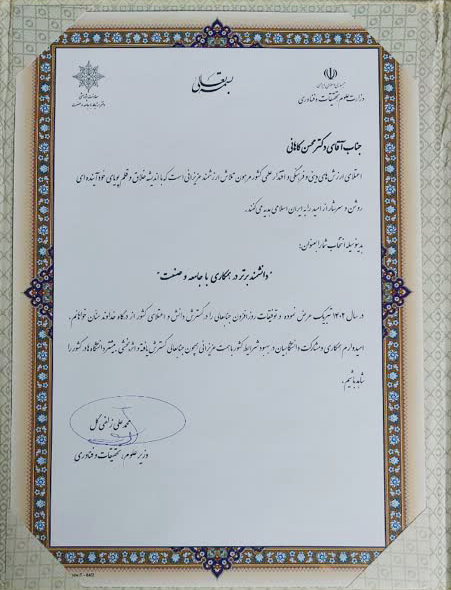 بسمه تعالی
جمهوری اسلامی ایران
وزارت علوم، تحقیقات و فناوری
جناب آقای دکتر محسن کاهانی
اعتلای ارزش‌های دینی و فرهنگی و اقتدار علمی کشور مرهون تلاش ارزشمند عزیزانی است که با اندیشه خلاق و قلم پویای خود آینده ای
روشن و سرشار از امید را به ایران اسلامی هدیه می‌کنند.
بدینوسیله انتخاب شما را بعنوان:
"دانشمند برتر در همکاری با جامعه و صنعت"
در سال ۱۴۰۲ تبریک عرض نموده و توفیقات روزافزون جنابعالی را در گسترش دانش و اعتلای کشور از درگاه خداوند منان خواهانم.
امیدوارم همکاری و مشارکت دانشگاهیان در بهبود شرایط کشور با همت عزیزانی همچون جنابعالی گسترش یافته و اثربخشی بیشتر دانشگاه‌ها در کشور را
شاهد باشیم.
محمد علی زلفی گل
وزیر علوم، تحقیقات و فناوری